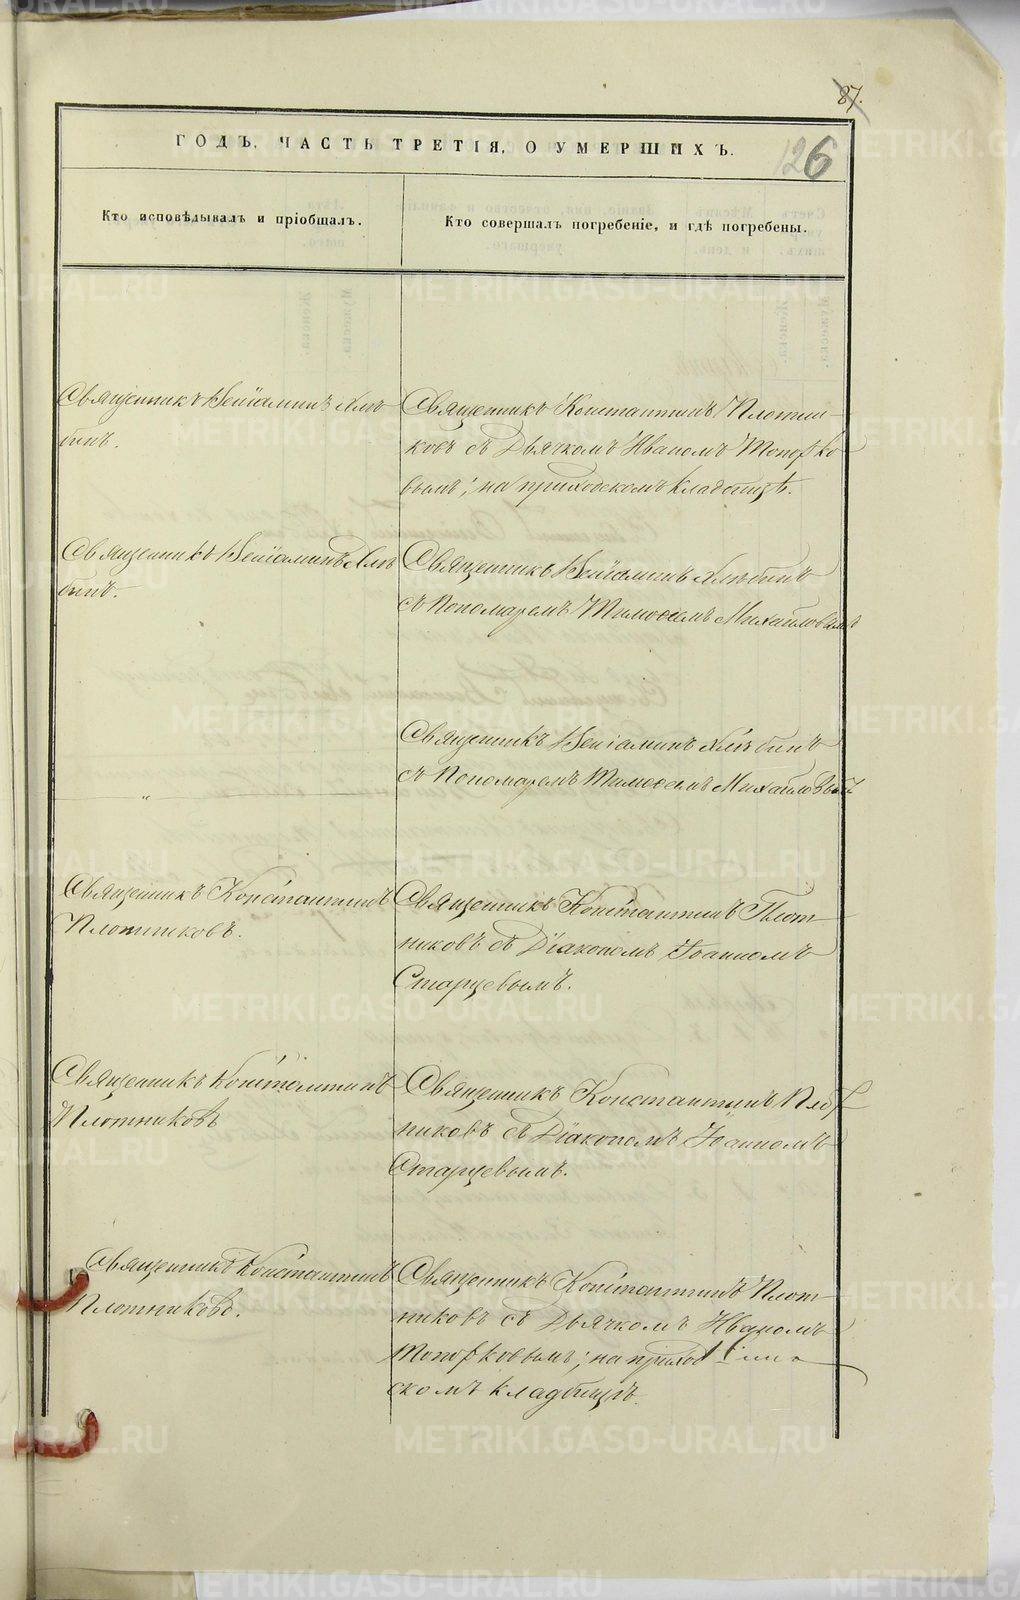 87.
ГОДЪ, ЧАСТЬ ТРЕТІЯ, О УМЕРШИХЪ.
126
Кто исповѣдывалъ и пріобщалъ.
Кто совершалъ погребеніе, и гдѣ погребены.
Священникъ Веніаминъ Хлѣ
бинъ.
Священникъ Константинъ Плотни-
ковъ съ Дьячкомъ Иваномъ Топорко
вымъ; на приходскомъ кладбищѣ.
Священникъ Веніаминъ Хлѣ
бинъ.
Священникъ Веніаминъ Хлѣбинъ
съ Пономаремъ Тимоѳеемъ Михайловымъ
„
Священникъ Веніаминъ Хлѣбинъ
съ Пономаремъ Тимоѳеемъ Михайловымъ
Священникъ Константинъ
Плотниковъ.
Священникъ Константинъ Плот-
никовъ съ Діакономъ Іоанномъ
Старцевымъ.
Священникъ Константинъ
Плотниковъ
Священникъ Константинъ Плот
никовъ съ Діакономъ Іоанномъ
Старцевымъ.
Священникъ Константинъ
Плотниковъ.
Священникъ Константинъ Плот-
никовъ съ Дьячкомъ Иваномъ
Топорковымъ; на приход
скомъ кладбищѣ.
METRIKI.GASO-URAL.RU